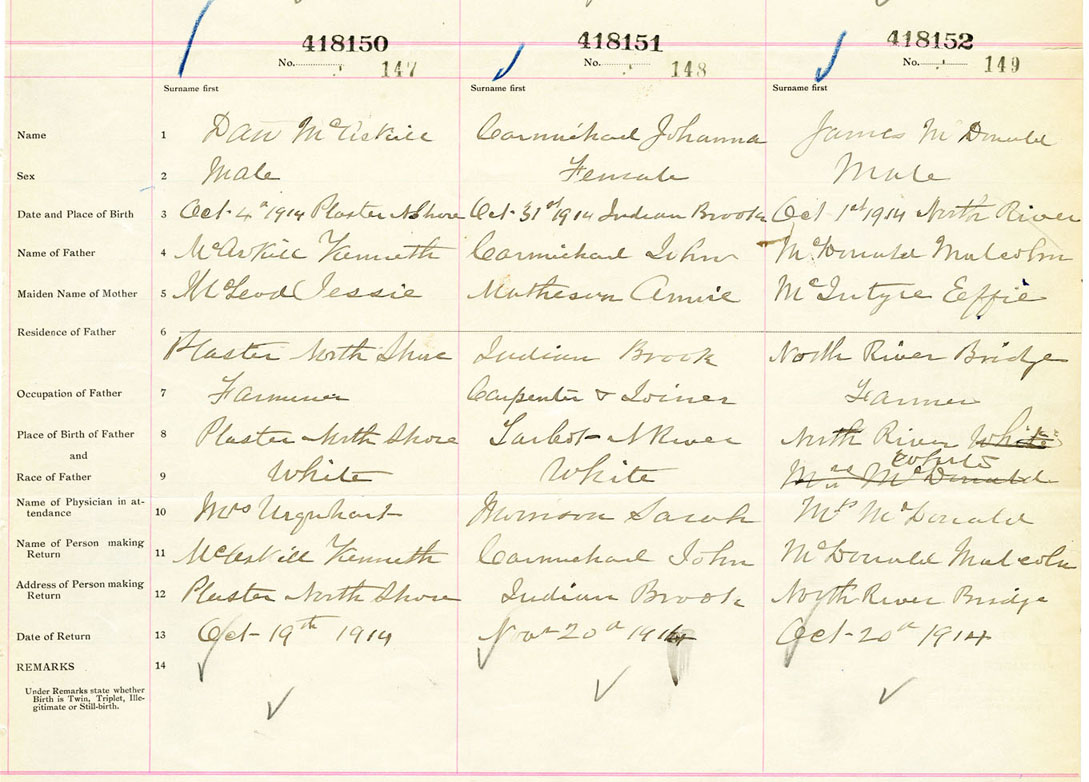 418150 418151 418152
No. 147 No. 148 No. 149
Surname first Surname first Surname first
Name 1 Dan McAskill Carmichael Johanna James McDonald
Sex 2 Male Female Male
Date and Place of Birth 3 Oct. 4th 1914 Plaster N Shore Oct. 31st 1914 Indian Brook Oct 1st 1914 North River
Name of Father 4 McAskill Kenneth Carmichael John McDonald Malcolm
Maiden Name of Mother 5 McLeod Jessie Matheson Annie McIntyre Effie
Residence of Father 6
Plaster North Shore Indian Brook North River Bridge
Occupation of Father 7 Farmer Carpenter & Joiner Farmer
Place of Birth of Father 8 Plaster North Shore Tarbot N River North River White
and
Race of Father 9 White White Mrs McDonald white
Name of Physician in at-
tendance 10 Mrs Urquhart Morrison Sarah Mrs McDonald
Name of Person making
Return 11 McAskill Kenneth Carmichael John McDonald Malcolm
Address of Person making
Return 12 Plaster North Shore Indian Brook North River Bridge
Date of Return 13 Oct-19th 1914 Nov 20th 1914 Oct-20th 1914
REMARKS 14
Under Remarks state whether
Birth is Twin, Triplet, Ille-
gitimate or Still-birth.